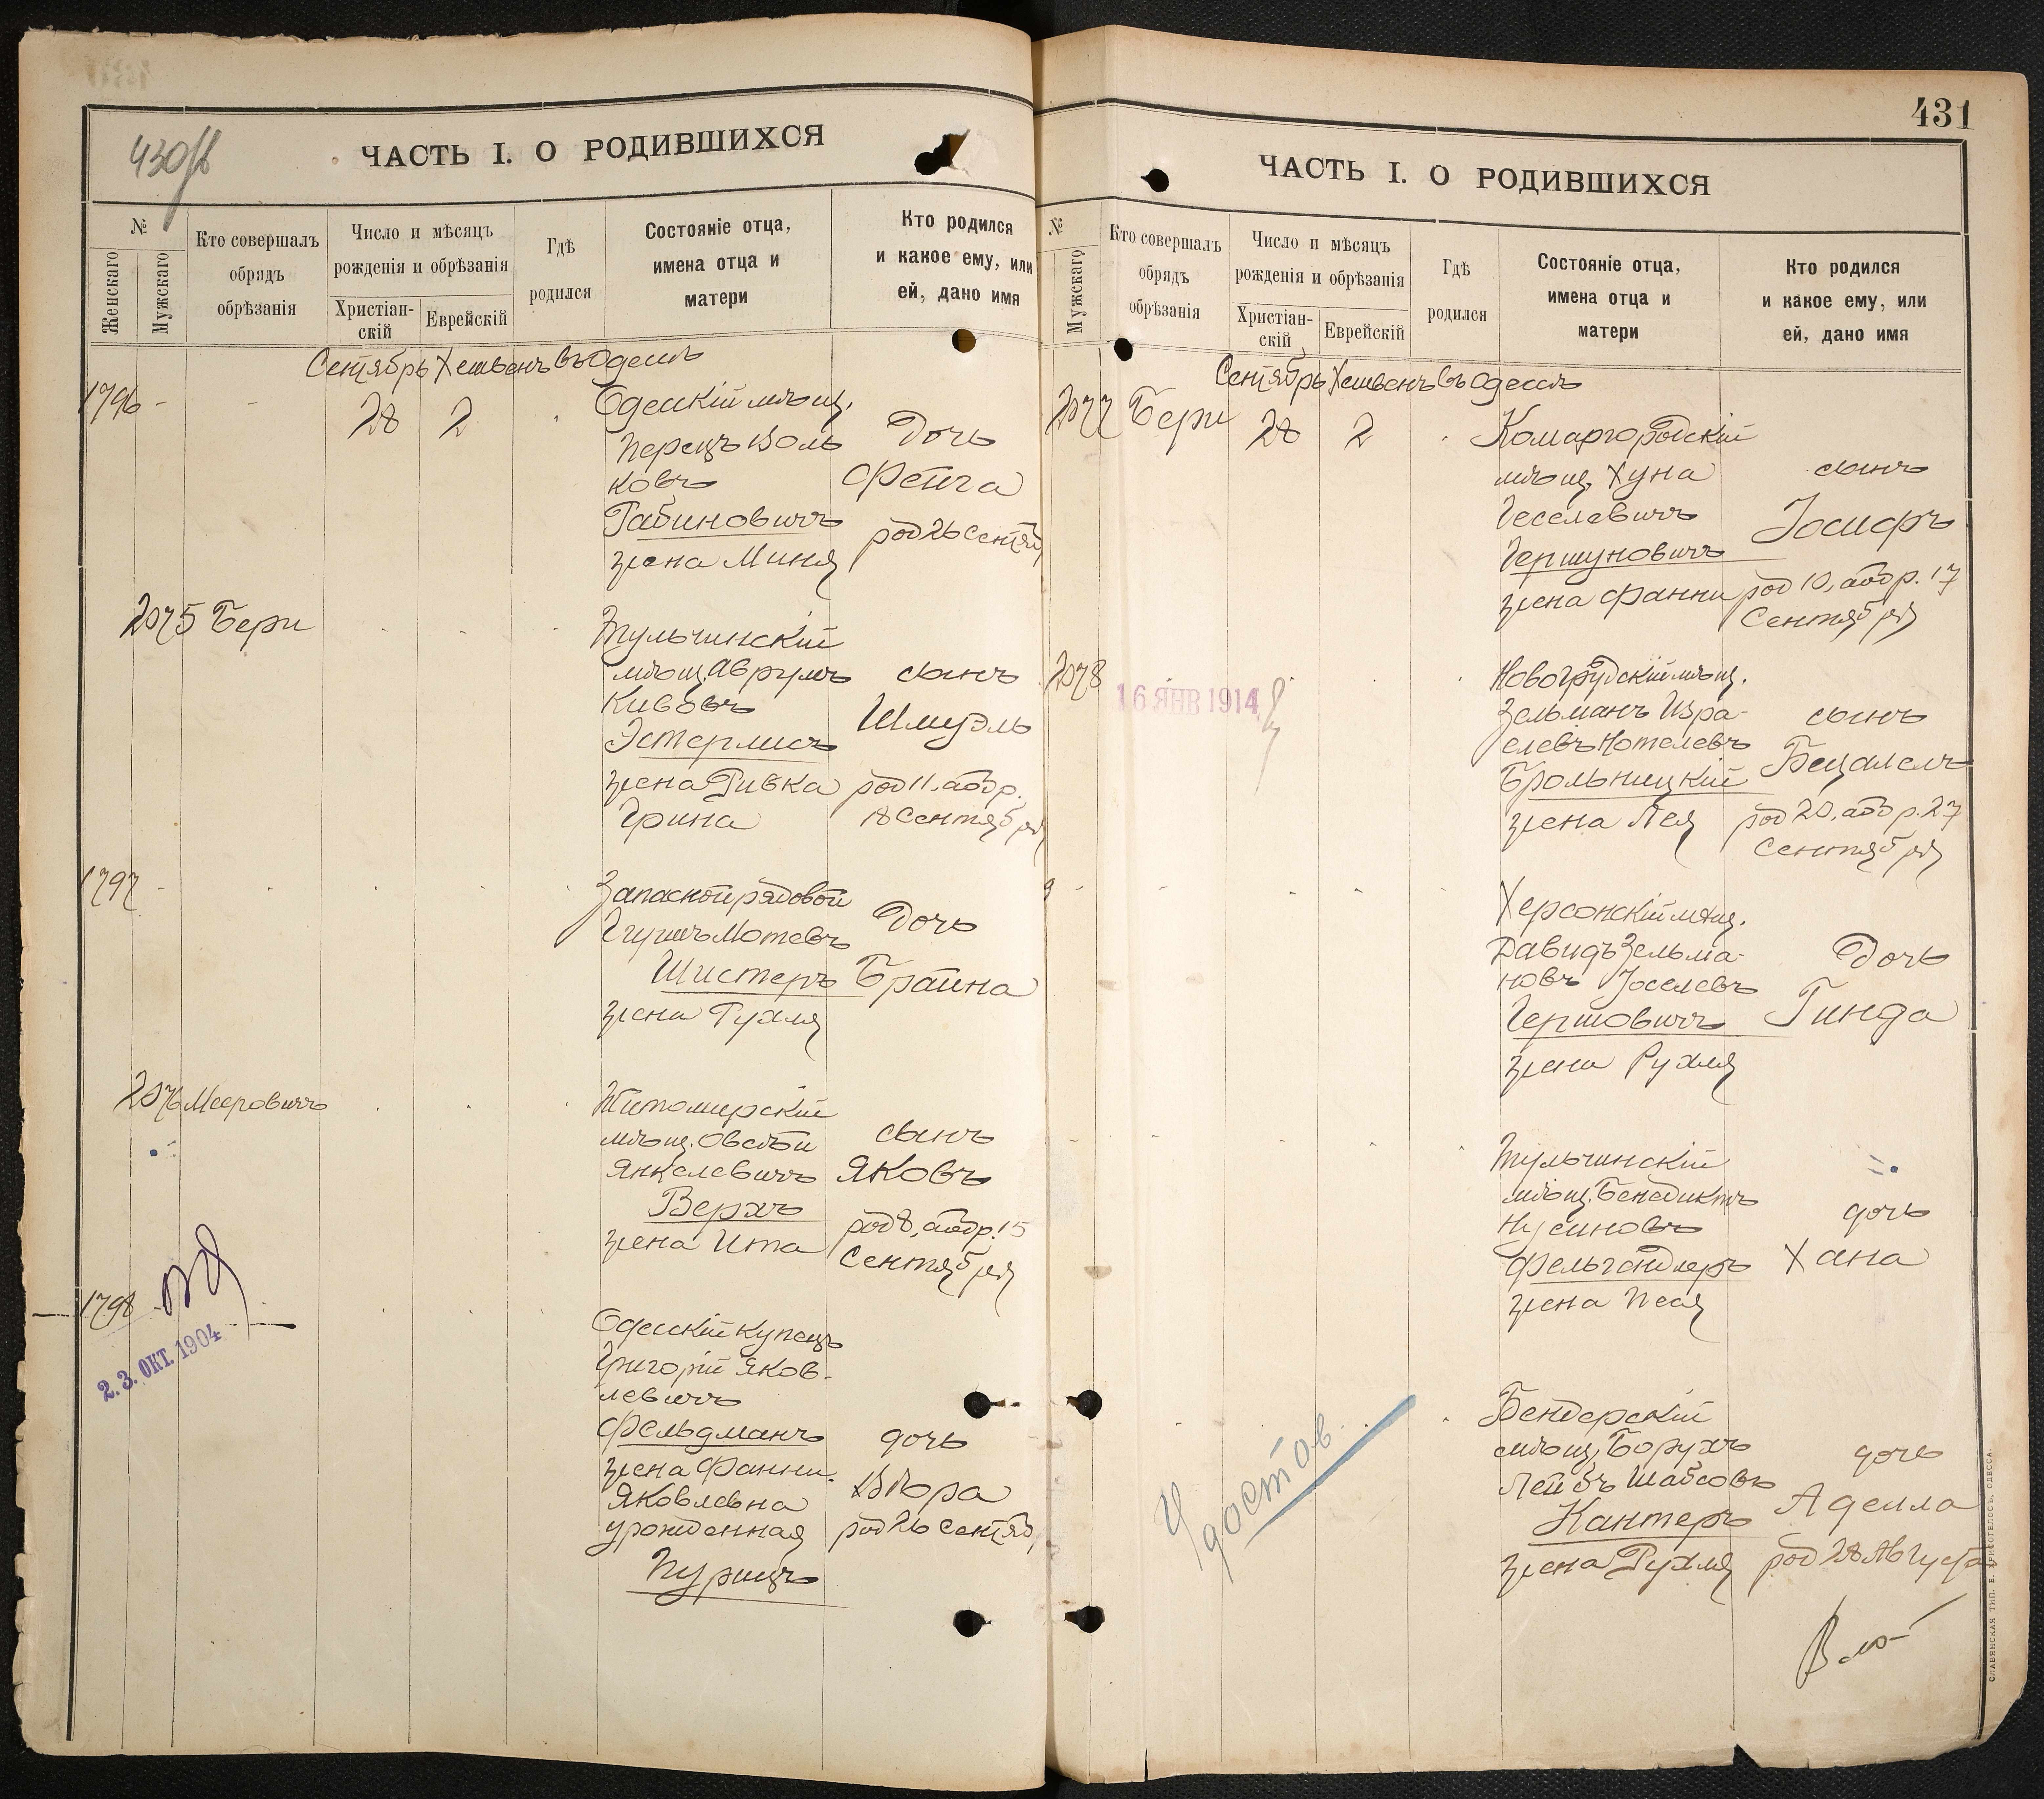 430/б
ЧАСТЬ I. О РОДИВШИХСЯ
№
Женскаго
Мужскаго
Кто совершалъ
обрядъ
обрѣзанія
Число и мѣсяцъ
рожденія и обрѣзанія
Христіан-
скій
Еврейскій
Гдѣ
родился
Состояніе отца,
имена отца и
матери
Кто родился
и какое ему, или
ей, дано имя
Сентябрь Хешвенъ въ Одессѣ
1796 - - 28 2
Одесскій мѣщ.
Перецъ Воль
ковъ
Рабиновичъ
жена Миня
Дочь
Фейга
род 26 Сентяб
2075 Бери
Тульчинскій
мѣщ. Аврумъ
Кивовъ
Эстерлисъ
жена Ривка
Ѳрина
сынъ
Шмуэль
род 11, а обр.
18 Сентября
1797 -
Запасной рядовой
Гершъ Мотевъ
Шистеръ
жена Рухля
Дочь
Брайна
2076 Мееровичъ
Житомирскій
мѣщ. Овсѣй
Янкелевичъ
Верхъ
жена Ита
сынъ
Яковъ
род 8, а обр. 15
Сентября
1798
2.3. ОКТ. 1904
Одесскій купецъ
Григорій Яков-
левичъ
Фельдманъ
жена Фанни
Яковлевна
урожденная
Пурицъ
дочь
род 26 Сентяб
431
ЧАСТЬ I. О РОДИВШИХСЯ
№
Мужскаго
Кто совершалъ
обрядъ
обрѣзанія
Число и мѣсяцъ
рожденія и обрѣзанія
Христіан-
скій
Еврейскій
Гдѣ
родился
Состояніе отца,
имена отца и
матери
Кто родился
и какое ему, или
ей, дано имя
Сентябрь Хешвенъ въ Одессѣ
2077 Бери 28 2
Комаргородскій
мѣщ. Хуна
Геселевичъ
Гершуновичъ
жена Фанни
сынъ
Іосифъ
род 10, а обр. 17
Сентября
2078
16 ЯНВ 1914
Новогрудскій мѣщ.
Зельманъ Изра-
елевъ Нотелевъ
Брольницкій
жена Лея
сынъ
Бецалелъ
род 20, а обр. 27
Сентября
Херсонскій мѣщ.
Давидъ Зельма-
новъ Іоселевъ
Гершовичъ
жена Рухля
Дочь
Гинда
Тульчинскій
мѣщ. Бенедиктъ
Нусиновъ
Фельгендлеръ
жена Песя
дочь
Хана
Удостов.
Бендерскій
мѣщ. Борухъ
Лейбъ Шабсовъ
Кантеръ
жена Рухля
дочь
Аделла
род 28 Августа
СЛАВЯНСКАЯ ТИП. Е. ХРИСОГЕЛОСЪ, ОДЕССА.